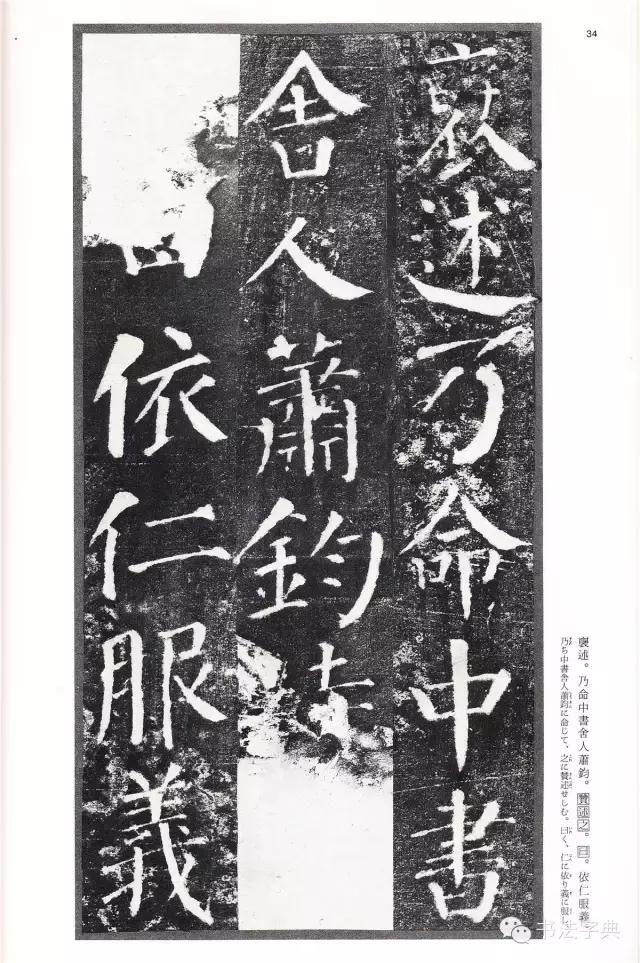 34
襃述乃命中書
舍人蕭鈞
依仁服義
襃述。乃命中書舍人蕭鈞。贊述之。曰。依仁服義
乃ち中書舍人蕭鈞に命じて、之に贊述せしむ。曰く、仁に依り義に服し、
书法字典